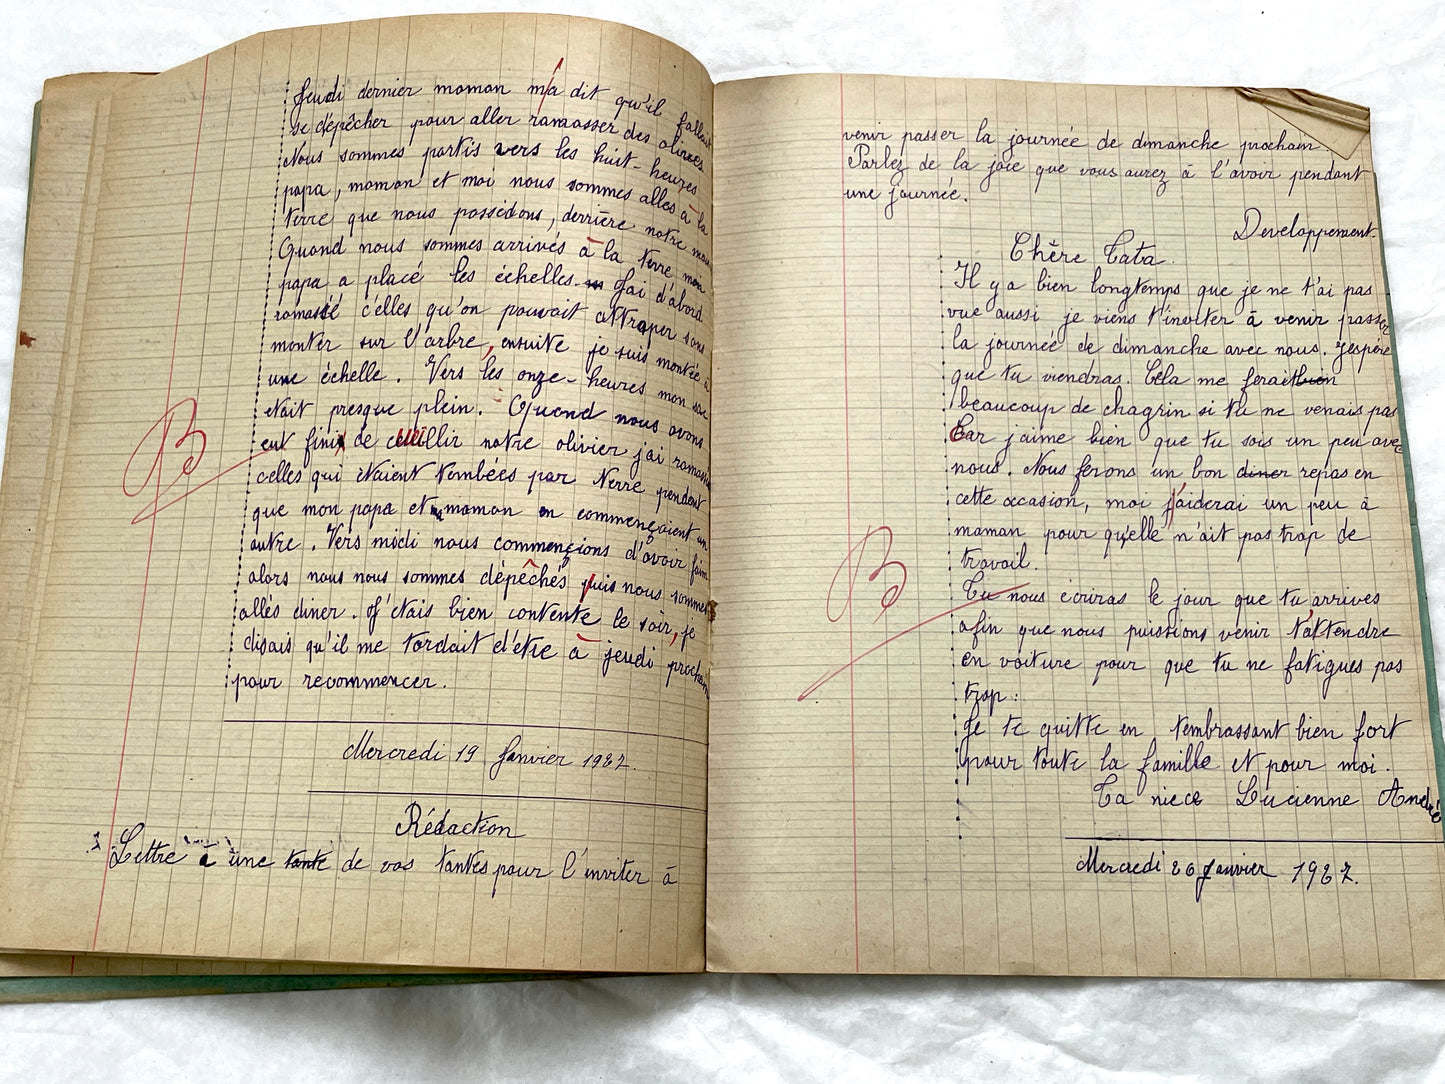 Jeudi dernier maman m'a dit qu'il fallait
se dépêcher pour aller ramasser des olives
Nous sommes partis vers les huit-heures
papa, maman et moi nous sommes allés à la
terre que nous possédons, derrière notre
Quand nous sommes arrivés à la terre mon
papa a placé les échelles. J'ai d'abord
ramassé celles qu'on pouvait attraper sans
monter sur l'arbre, ensuite je suis montée à
une échelle. Vers les onze-heures mon sac
était presque plein. Quand nous avons
eut fini de cueillir notre olivier j'ai ramassé
celles qui étaient tombées par terre pendent
que mon papa et maman en commençaient un
autre. Vers midi nous commencions d'avoir faim
alors nous nous sommes dépêchés puis nous sommes
allés diner. J'étais bien contente le soir, je
disais qu'il me tardait d'être à jeudi prochain
pour recommencer.
B
Mercredi 19 Janvier 1927.
Rédaction
Lettre à une tante de vos tantes pour l'inviter à
venir passer la journée de dimanche prochain.
Parlez de la joie que vous aurez à l'avoir pendant
une journée.
Developpement.
Chère Tata.
Il y a bien longtemps que je ne t'ai pas
vue aussi je viens t'inviter à venir passer
la journée de dimanche avec nous. J'espère
que tu viendras. Cela me ferait bien
beaucoup de chagrin si tu ne venais pas
Car j'aime bien que tu sois un peu avec
nous. Nous ferons un bon diner repas en
cette occasion, moi j'aiderai un peu à
maman pour qu'elle n'ait pas trop de
travail.
B
Tu nous écriras le jour que tu arrives
afin que nous puissions venir t'attendre
en voiture pour que tu ne fatigues pas
trop.
Je te quitte en t'embrassant bien fort
pour toute la famille et pour moi.
Ta niece Lucienne André
Mercredi 26 Janvier 1927.